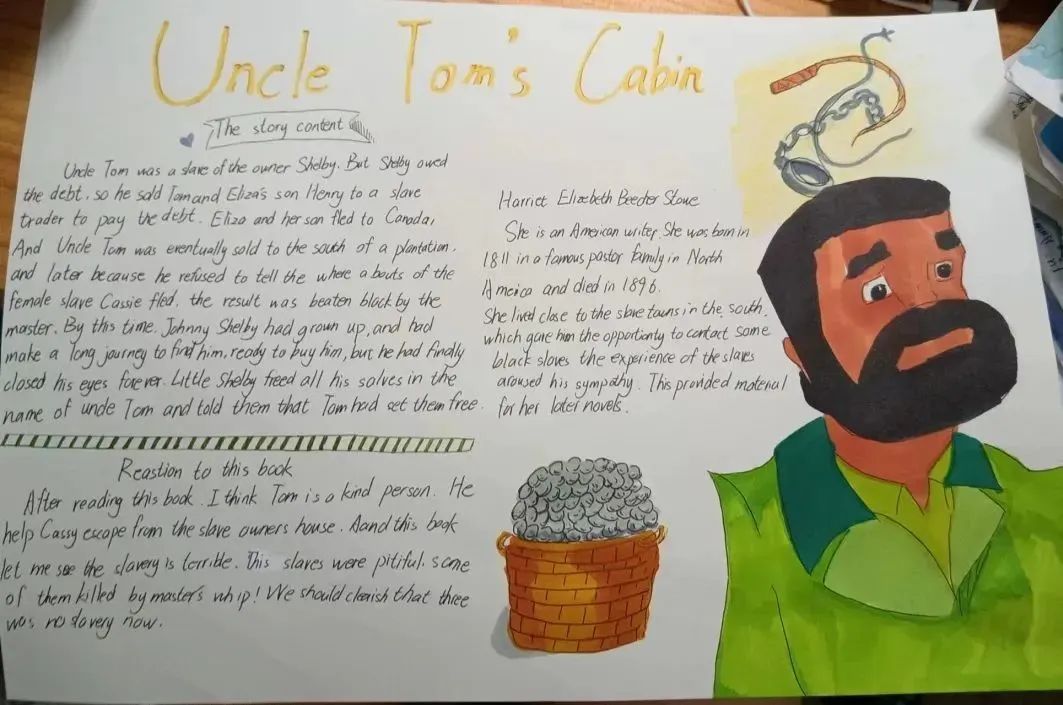 Uncle Tom's Cabin
The story content
Uncle Tom was a slave of the owner Shelby. But Shelby owed
the debt, so he sold Tom and Eliza's son Henry to a slave
trader to pay the debt. Eliza and her son fled to Canada,
And Uncle Tom was eventually sold to the south of a plantation.
and later because he refused to tell the where abouts of the
female slave Cassie fled, the result was beaten black by the
master. By this time. Johnny Shelby had grown up, and had
make a long journey to find him, ready to buy him, but he had finally
closed his eyes forever. Little Shelby freed all his salves in the
name of uncle Tom and told them that Tom had set them free.
Reastion to this book
After reading this book. I think Tom is a kind person. He
help Cassy escape from the slave owners house. Aand this book
let me see the slavery is terrible. This slaves were pitiful. some
of them killed by master's whip! We should cherish that three
was no slavery now.
Harriet Elizebeth Beecter Stowe
She is an American writer. She was born in
1811 in a famous pastor family in North
Ameica and died in 1896.
She lived close to the slave towns in the south.
which gave him the opportunty to contact some
black slaves the experience of the slaves
aroused his sympathy. This provided material
for her later novels.